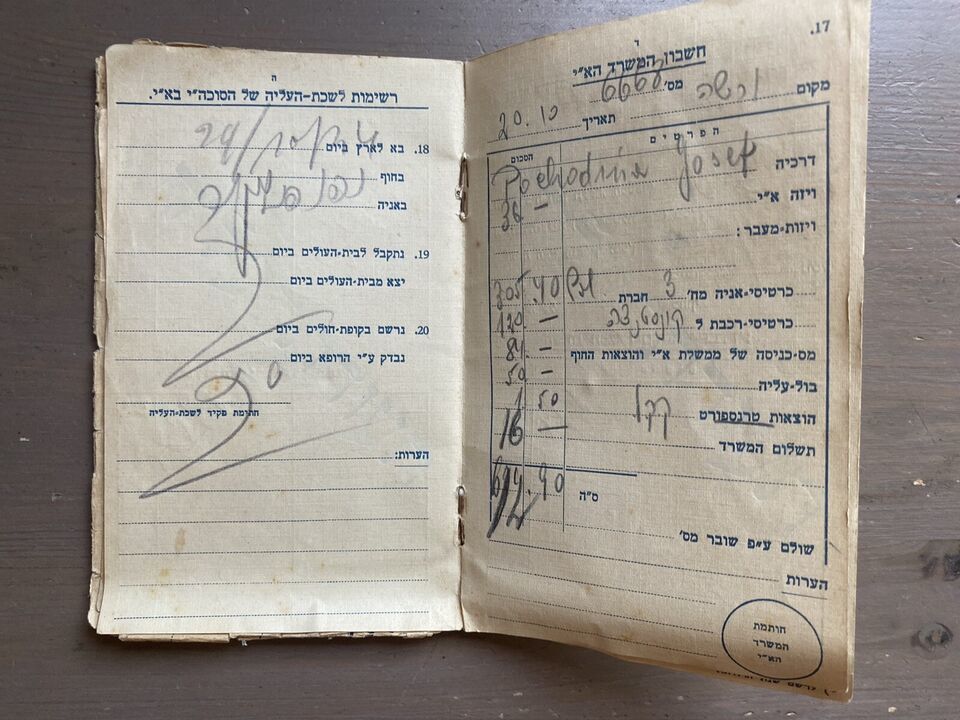 17.
ז
חשבון המשרד הא"י
מקום ורשה מס'
תאריך 20.10
הפרטים
הסכום
דרכיה Josef
ויזה א"י 36 —
ויזות-מעבר:
כרטיסי-אניה מח' 3 חברת 305.40
כרטיסי-רכבת ל קונסטנצה 120 —
מס-כניסה של ממשלת א"י והוצאות החוף 84 —
בול-עליה 50 —
הוצאות טרנספורט קקל 1 50
תשלום המשרד 16 —
ס"ה .90
שולם ע"פ שובר מס'
הערות
חותמת
המשרד
הא"י
ה
רשימות לשכת-העליה של הסוכה"י בא"י.
18. בא לארץ ביום
בחוף
באניה
19. נתקבל לבית-העולים ביום
יצא מבית-העולים ביום
20. נרשם בקופת-חולים ביום
נבדק ע"י הרופא ביום
חתימת פקיד לשכת-העליה
הערות: